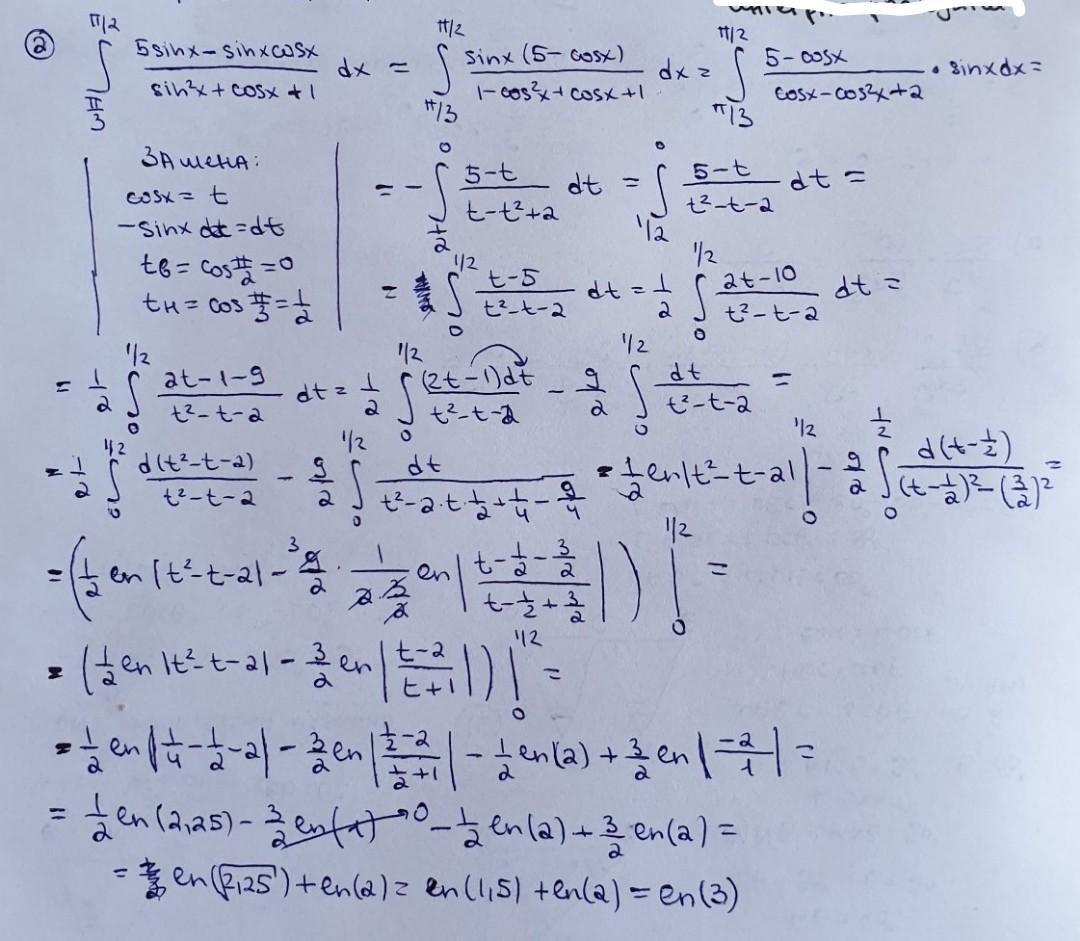 ② ∫_{π/3}^{π/2} (5sinx - sinxcosx)/(sin²x + cosx + 1) dx = ∫_{π/3}^{π/2} (sinx(5 - cosx))/(1 - cos²x + cosx + 1) dx = ∫_{π/3}^{π/2} (5 - cosx)/(cosx - cos²x + 2) • sinxdx =
Замена:
cosx = t
-sinx dx = dt
tв = cos π/2 = 0
tн = cos π/3 = 1/2
= - ∫_{1/2}^{0} (5-t)/(t-t²+2) dt = ∫_{1/2}^{0} (5-t)/(t²-t-2) dt =
= ∫_{0}^{1/2} (t-5)/(t²-t-2) dt = 1/2 ∫_{0}^{1/2} (2t-10)/(t²-t-2) dt =
= 1/2 ∫_{0}^{1/2} (2t-1-9)/(t²-t-2) dt = 1/2 ∫_{0}^{1/2} ((2t-1)dt)/(t²-t-2) - 9/2 ∫_{0}^{1/2} dt/(t²-t-2) =
= 1/2 ∫_{0}^{1/2} d(t²-t-2)/(t²-t-2) - 9/2 ∫_{0}^{1/2} dt/(t²-2·t·1/2+1/4-9/4) = 1/2 ln|t²-t-2| |_{0}^{1/2} - 9/2 ∫_{0}^{1/2} d(t-1/2)/((t-1/2)²-(3/2)²) =
= (1/2 ln|t²-t-2| - 9/2 · 1/(2·3/2) ln|(t-1/2-3/2)/(t-1/2+3/2)|) |_{0}^{1/2} =
= (1/2 ln|t²-t-2| - 3/2 ln|(t-2)/(t+1)|) |_{0}^{1/2} =
= 1/2 ln|1/4-1/2-2| - 3/2 ln|(1/2-2)/(1/2+1)| - 1/2 ln(2) + 3/2 ln|-2/1| =
= 1/2 ln(2,25) - 3/2 ln(1)→0 - 1/2 ln(2) + 3/2 ln(2) =
= ln(√2,25) + ln(2) = ln(1,5) + ln(2) = ln(3)